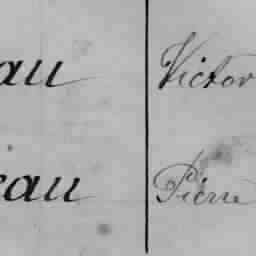 au Victor
eau Pierre